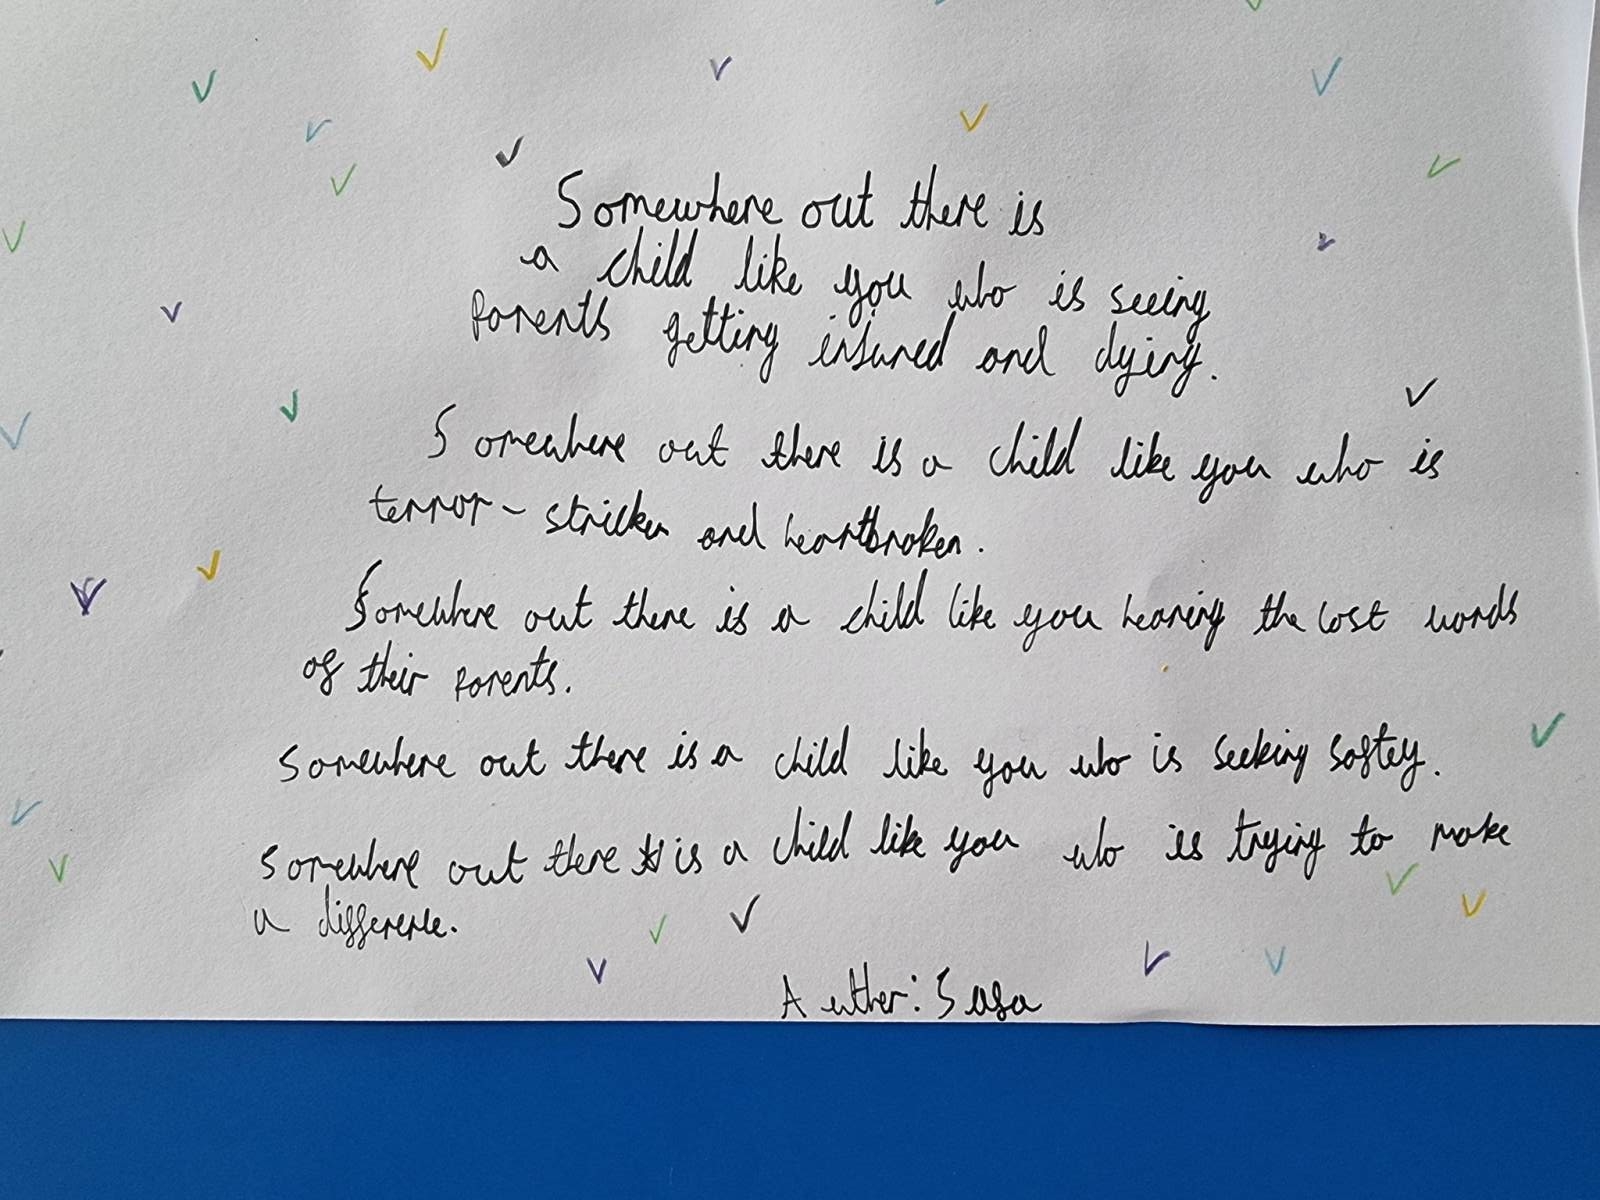 Somewhere out there is
a child like you who is seeing
Parents getting injured and dying.
Somewhere out there is a child like you who is
terror-stricken and heartbroken.
Somewhere out there is a child like you hearing the last words
of their parents.
Somewhere out there is a child like you who is seeking saftey.
Somewhere out there is a child like you who is trying to make
a difference.
Auther: